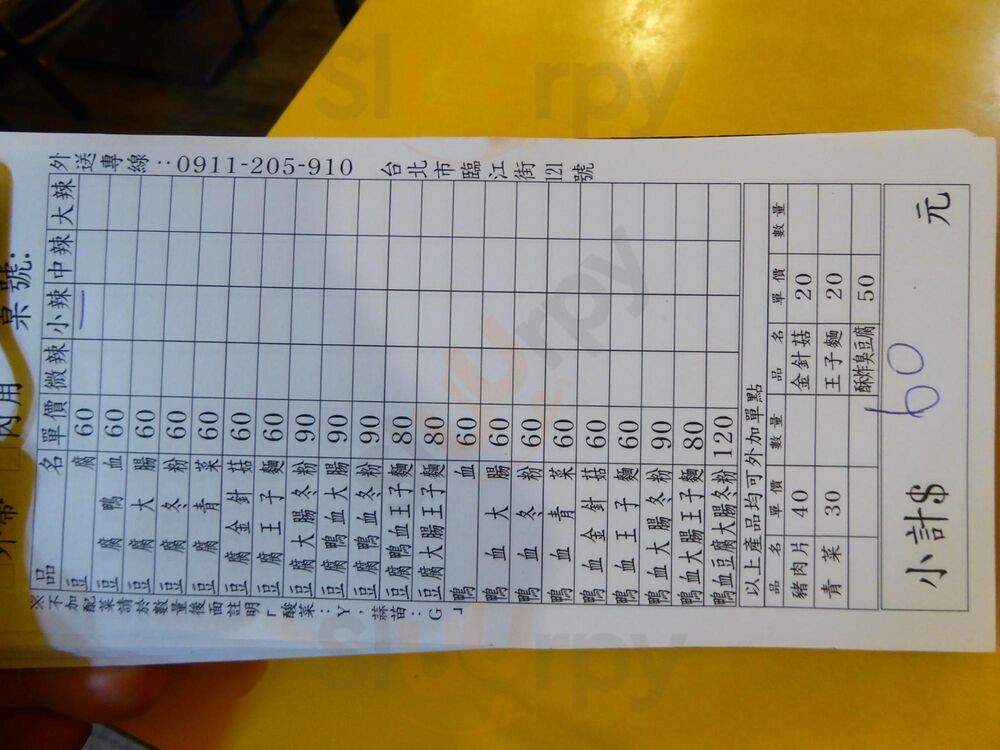 外帶 內用 桌號:
品名 單價 微辣 小辣 中辣 大辣
豆腐 60 一
豆腐鴨血 60
豆腐大腸 60
豆腐冬粉 60
豆腐青菜 60
豆腐金針菇 60
豆腐王子麵 60
豆腐大腸冬粉 90
豆腐鴨血大腸 90
豆腐鴨血冬粉 90
豆腐鴨血王子麵 80
豆腐大腸王子麵 80
鴨血 60
鴨血大腸 60
鴨血冬粉 60
鴨血青菜 60
鴨血金針菇 60
鴨血王子麵 60
鴨血大腸冬粉 90
鴨血大腸王子麵 80
鴨血豆腐大腸冬粉 120
以上產品均可外加單點
品名 單價 數量 品名 單價 數量
豬肉片 40 金針菇 20
青菜 30 王子麵 20
酥炸臭豆腐 50
小計$ 60 元
※不加配菜請於數量後面註明「酸菜:Y,蒜苗:G」
外送專線:0911-205-910 台北市臨江街121號
Slurpy
Slurpy
Slurpy